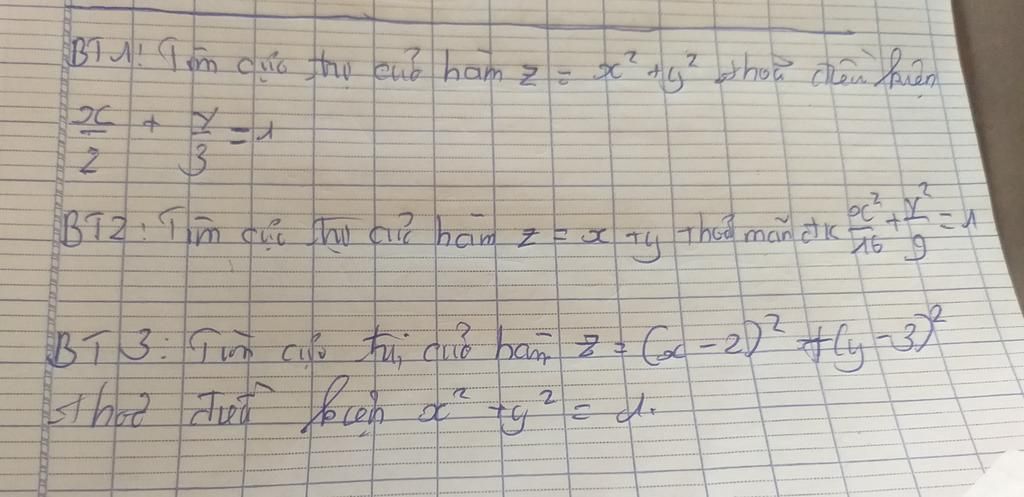 BT1: Tìm cực trị của hàm z = x² + y² thoả điều kiện
x/2 + y/3 = 1
BT2: Tìm cực trị của hàm z = x + y thoả mãn đk x²/16 + y²/9 = 1
BT3: Tìm cực trị của hàm z = (x - 2)² + (y - 3)²
thoả điều kiện x² + y² = 1.